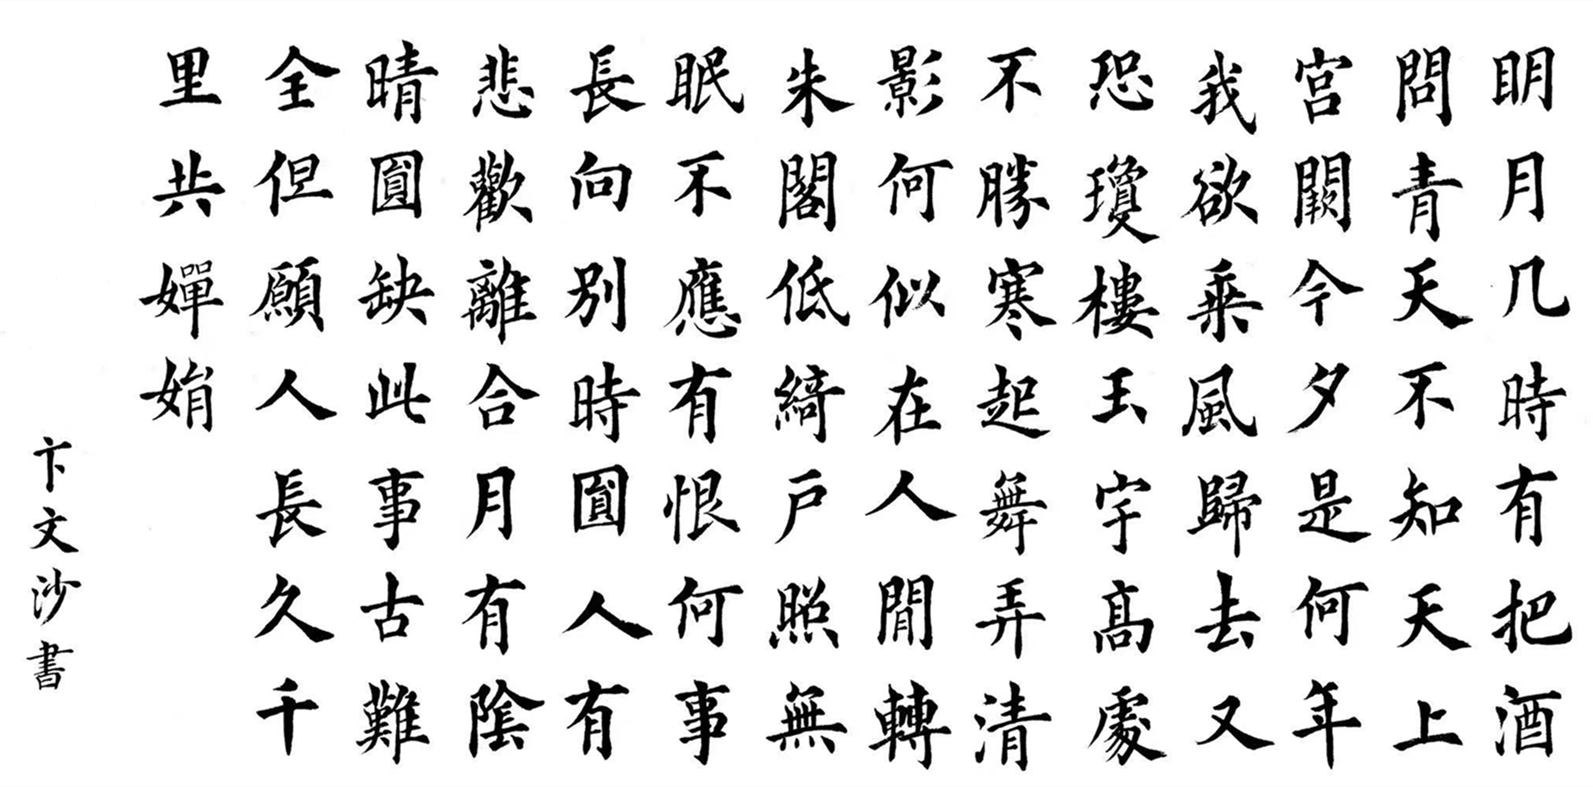 明月几時有把酒
問青天不知天上
宮闕今夕是何年
我欲乘風歸去又
恐瓊樓玉宇高處
不勝寒起舞弄清
影何似在人間轉
朱閣低綺戶照無
眠不應有恨何事
長向別時圓人有
悲歡離合月有陰
晴圓缺此事古難
全但願人長久千
里共嬋娟
卞文沙書